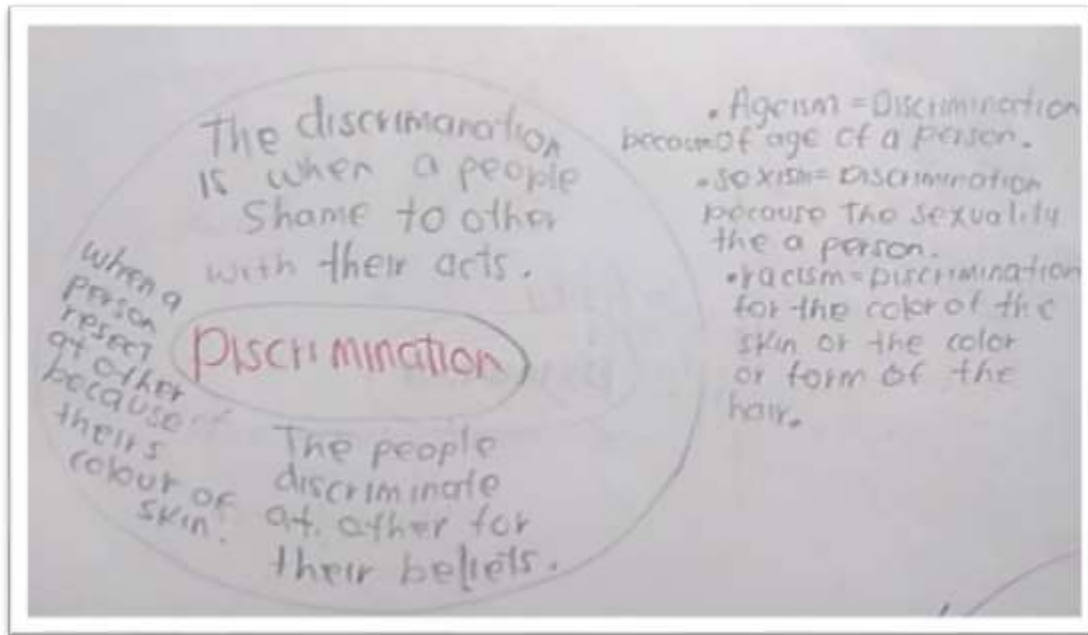 The discrimanation
is when a people
Shame to other
with their acts.
when a
person
resect
at other
because of
theirs
colour of
skin.
Discrimination
The people
discriminate
at. other for
their beliefs.
• Ageism = Discrimination
becaus of age of a person.
• sexism = Discrimination
because The sexuality
the a person.
• racism = Discrimination
for the color of the
skin or the color
or form of the
hair.